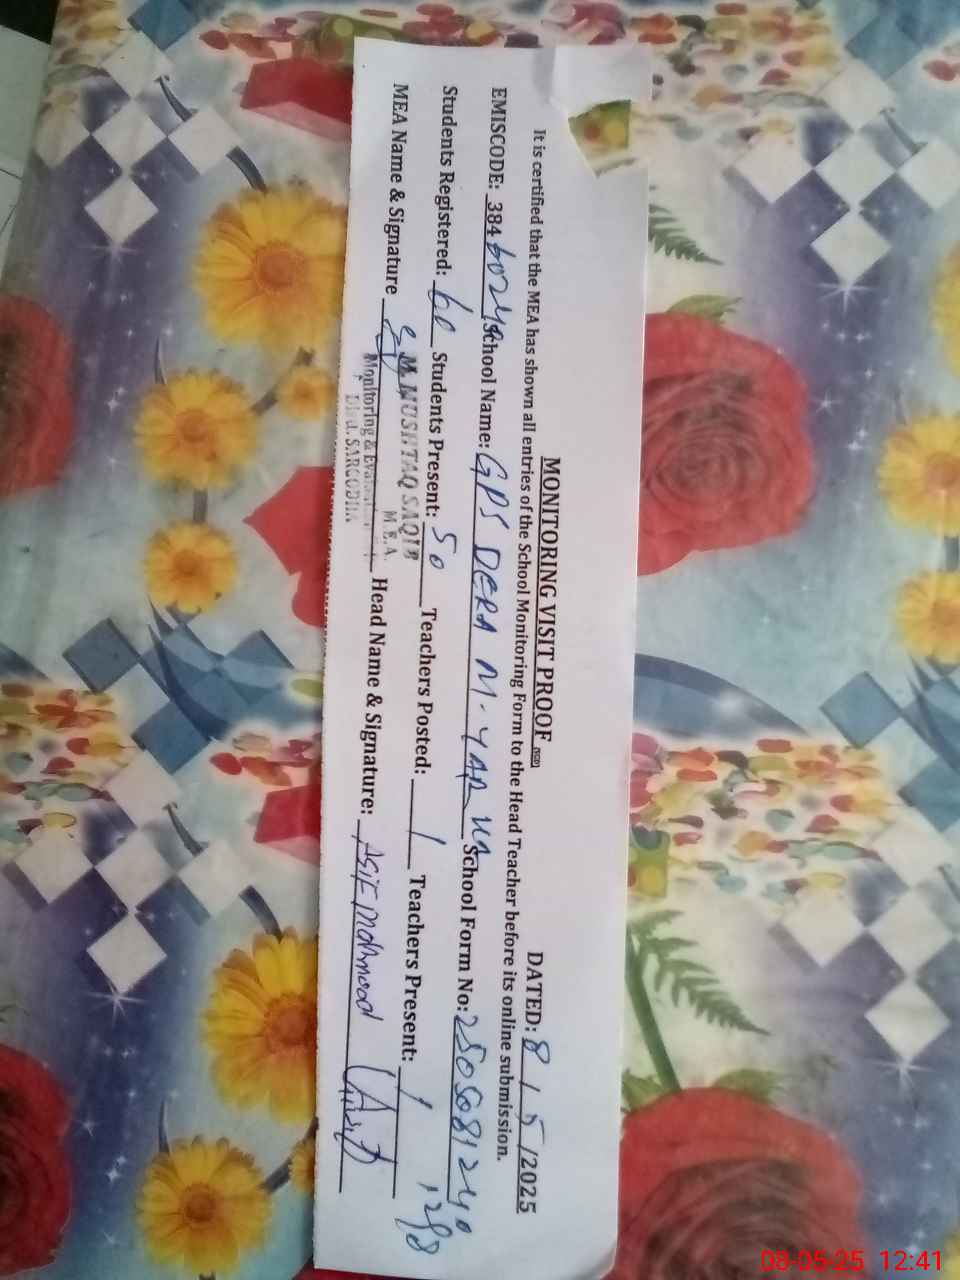 MONITORING VISIT PROOF
DATED: 8 / 5 /2025
It is certified that the MEA has shown all entries of the School Monitoring Form to the Head Teacher before its online submission.
EMISCODE: 38460245 School Name: GPS DERA M. YAR School Form No: 2505081240
Students Registered: 60 Students Present: 50 Teachers Posted: 1 Teachers Present: 1
M. MUSHTAQ SAQIB
M.E.A.
MEA Name & Signature Head Name & Signature: ASIF MAHMOOD
Monitoring &
Distt. SARGODHA
08-05-25 12:41